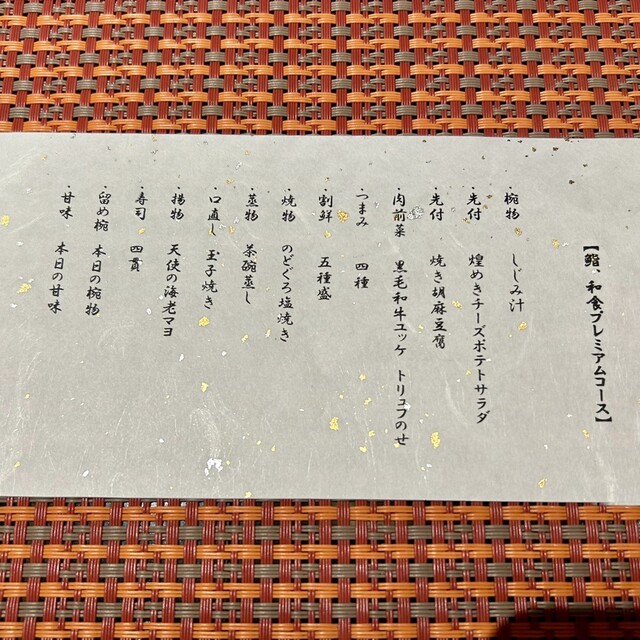 【鮨、和食プレミアムコース】
・椀物 しじみ汁
・先付 煌めきチーズポテトサラダ
・先付 焼き胡麻豆腐
・肉前菜 黒毛和牛ユッケ トリュフのせ
・つまみ 四種
・割鮮 五種盛
・焼物 のどぐろ塩焼き
・蒸物 茶碗蒸し
・口直し 玉子焼き
・揚物 天使の海老マヨ
・寿司 四貫
・留め椀 本日の椀物
・甘味 本日の甘味